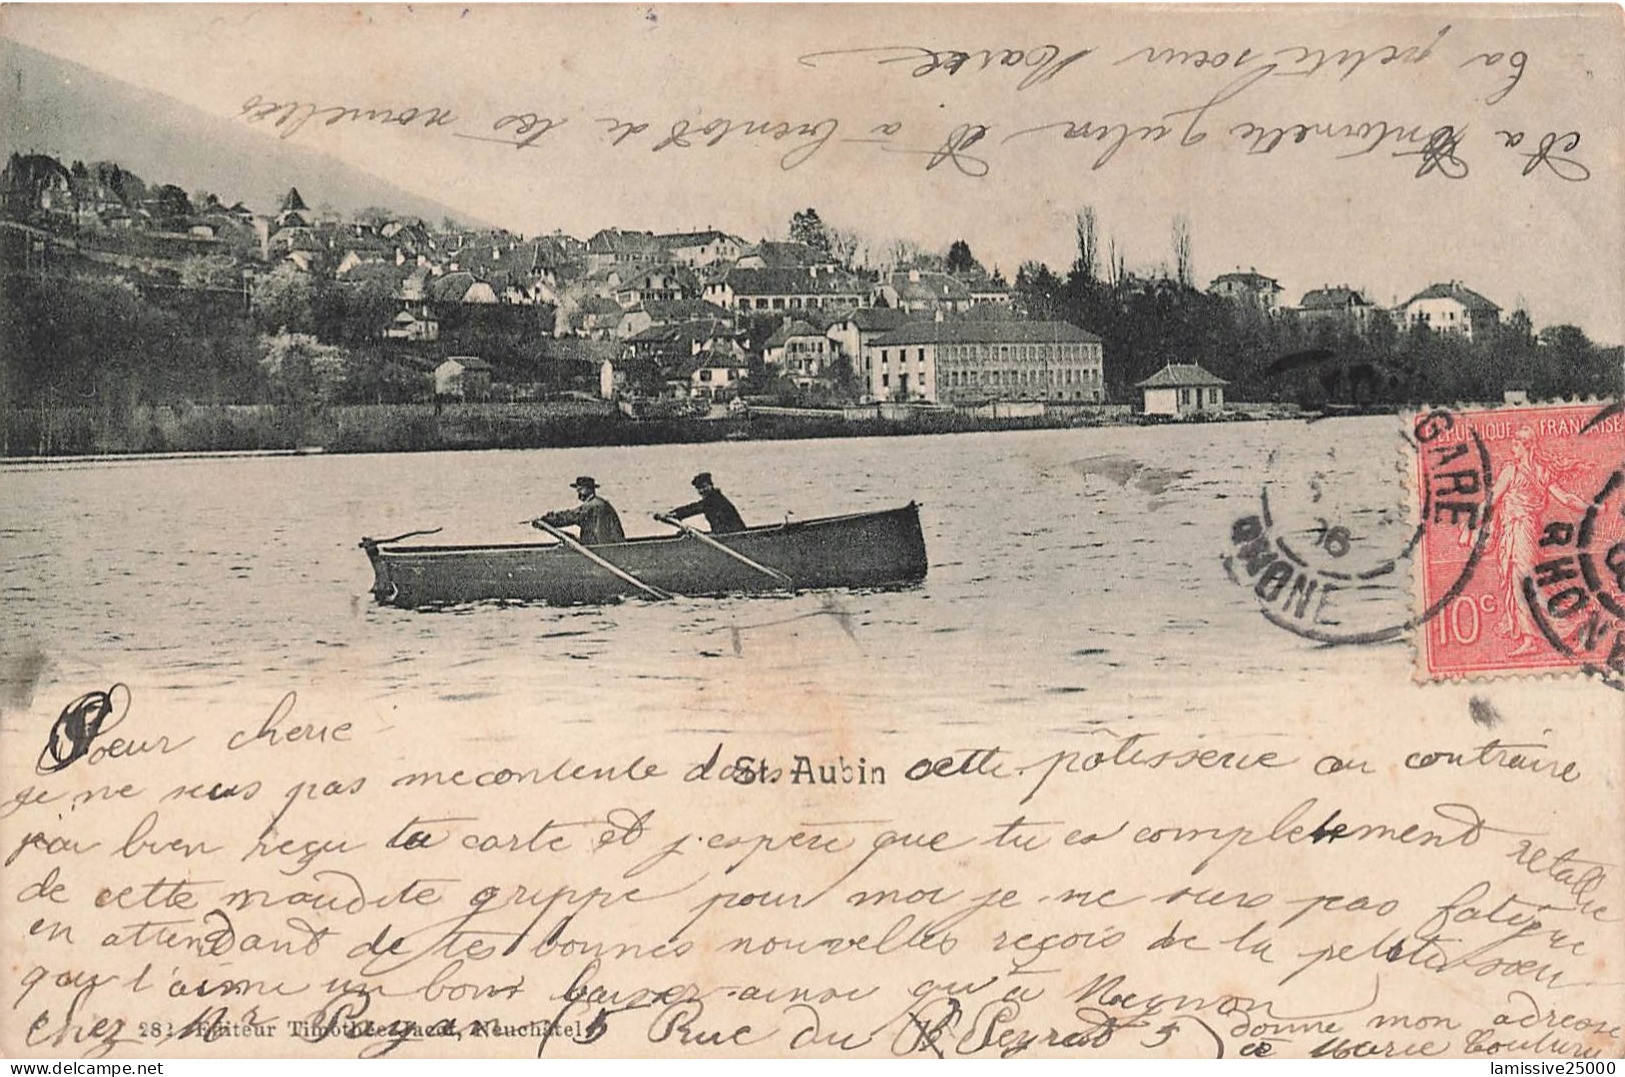 Soeur cherie
je ne suis pas mecontente dans cette pâtisserie au contraire
St. Aubin
j'ai bien reçu ta carte et j'espère que tu es completement retablie
de cette maudite grippe pour moi je ne suis pas fatigue
en attendant de tes bonnes nouvelles reçois de la petite soeur
qui t'aime un bon baiser ainsi qu'à
chez Mr (5 Rue du Peyrat 5) donne mon adresse
à Marie
281 Editeur Timothée Jacot, Neuchâtel
et a Antoinette Julia et a bientot de tes nouvelles
ta petite soeur Marie
REPUBLIQUE FRANÇAISE
10c
GARE
RHONE
06
lamissive25000